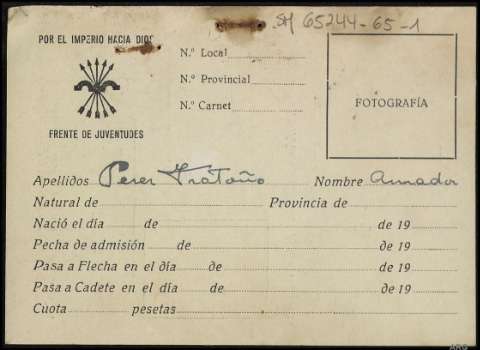 SM 65244-65-1
POR EL IMPERIO HACIA DIOS
FRENTE DE JUVENTUDES
N.º Local
N.º Provincial
N.º Carnet
FOTOGRAFÍA
Apellidos Perez Nombre Amador
Natural de Provincia de
Nació el día de de 19
Fecha de admisión de de 19
Pasa a Flecha en el día de de 19
Pasa a Cadete en el día de de 19
Cuota pesetas